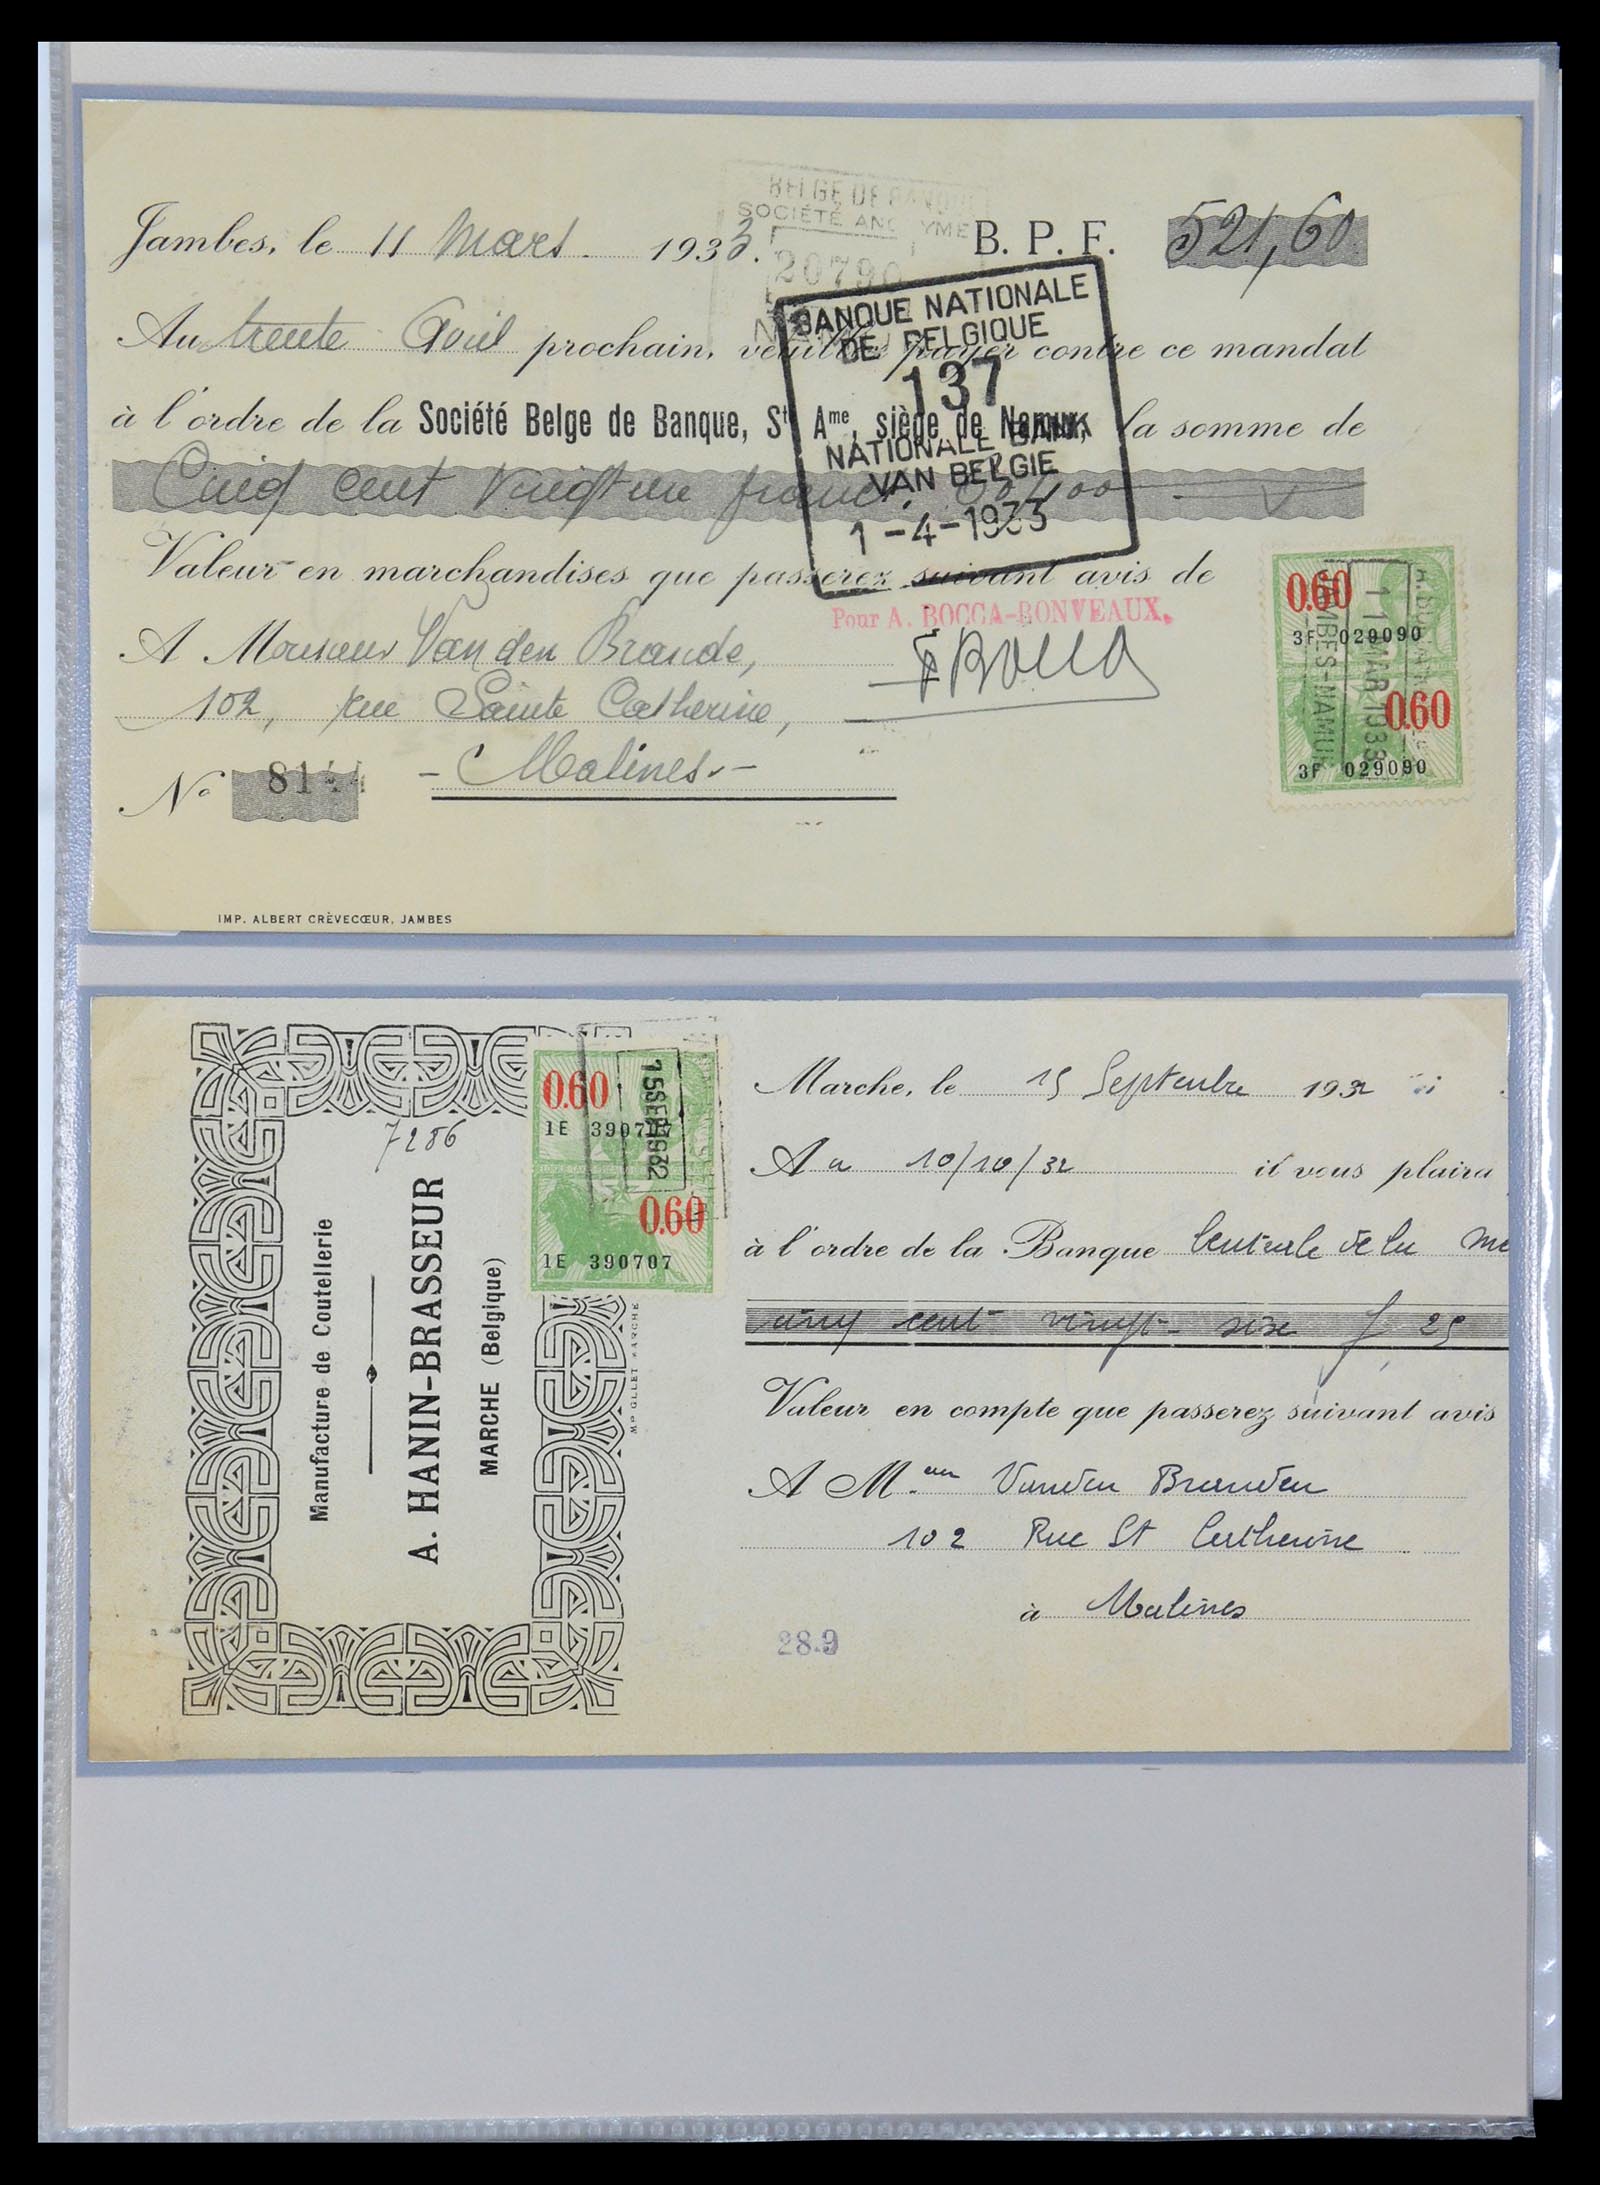 BELGE DE BANQUE
SOCIÉTÉ ANONYME
Jambes, le 11 Mars 1933. B. P. F. 521,60
BANQUE NATIONALE
DE BELGIQUE
137
NATIONALE BANK
VAN BELGIE
1-4-1933
Au trente Avril prochain, veuillez payer contre ce mandat
à l'ordre de la Société Belge de Banque, Sté Ame, siège de Namur, la somme de
Cinq cent vingt un francs, 60/100
Valeur en marchandises que passerez suivant avis de
Pour A. BOCCA-BONVEAUX.
A Monsieur Van den Brande,
102, rue Sainte Catherine,
Malines.-
No 8144
0.60
3F 029090
11 MAR 1933
JAMBES-NAMUR
0.60
3F 029090
IMP. ALBERT CRÈVECŒUR, JAMBES
7286
Manufacture de Coutellerie
A. HANIN-BRASSEUR
MARCHE (Belgique)
0.60
1E 390707
15 SEP 1932
0.60
1E 390707
Marche, le 15 Septembre 1932
Au 10/10/32 il vous plaira
à l'ordre de la Banque Centrale de la Me
cinq cent vingt-six f 25
Valeur en compte que passerez suivant avis
A M.eur Vanden Branden
102 Rue St Catherine
à Malines
28.9